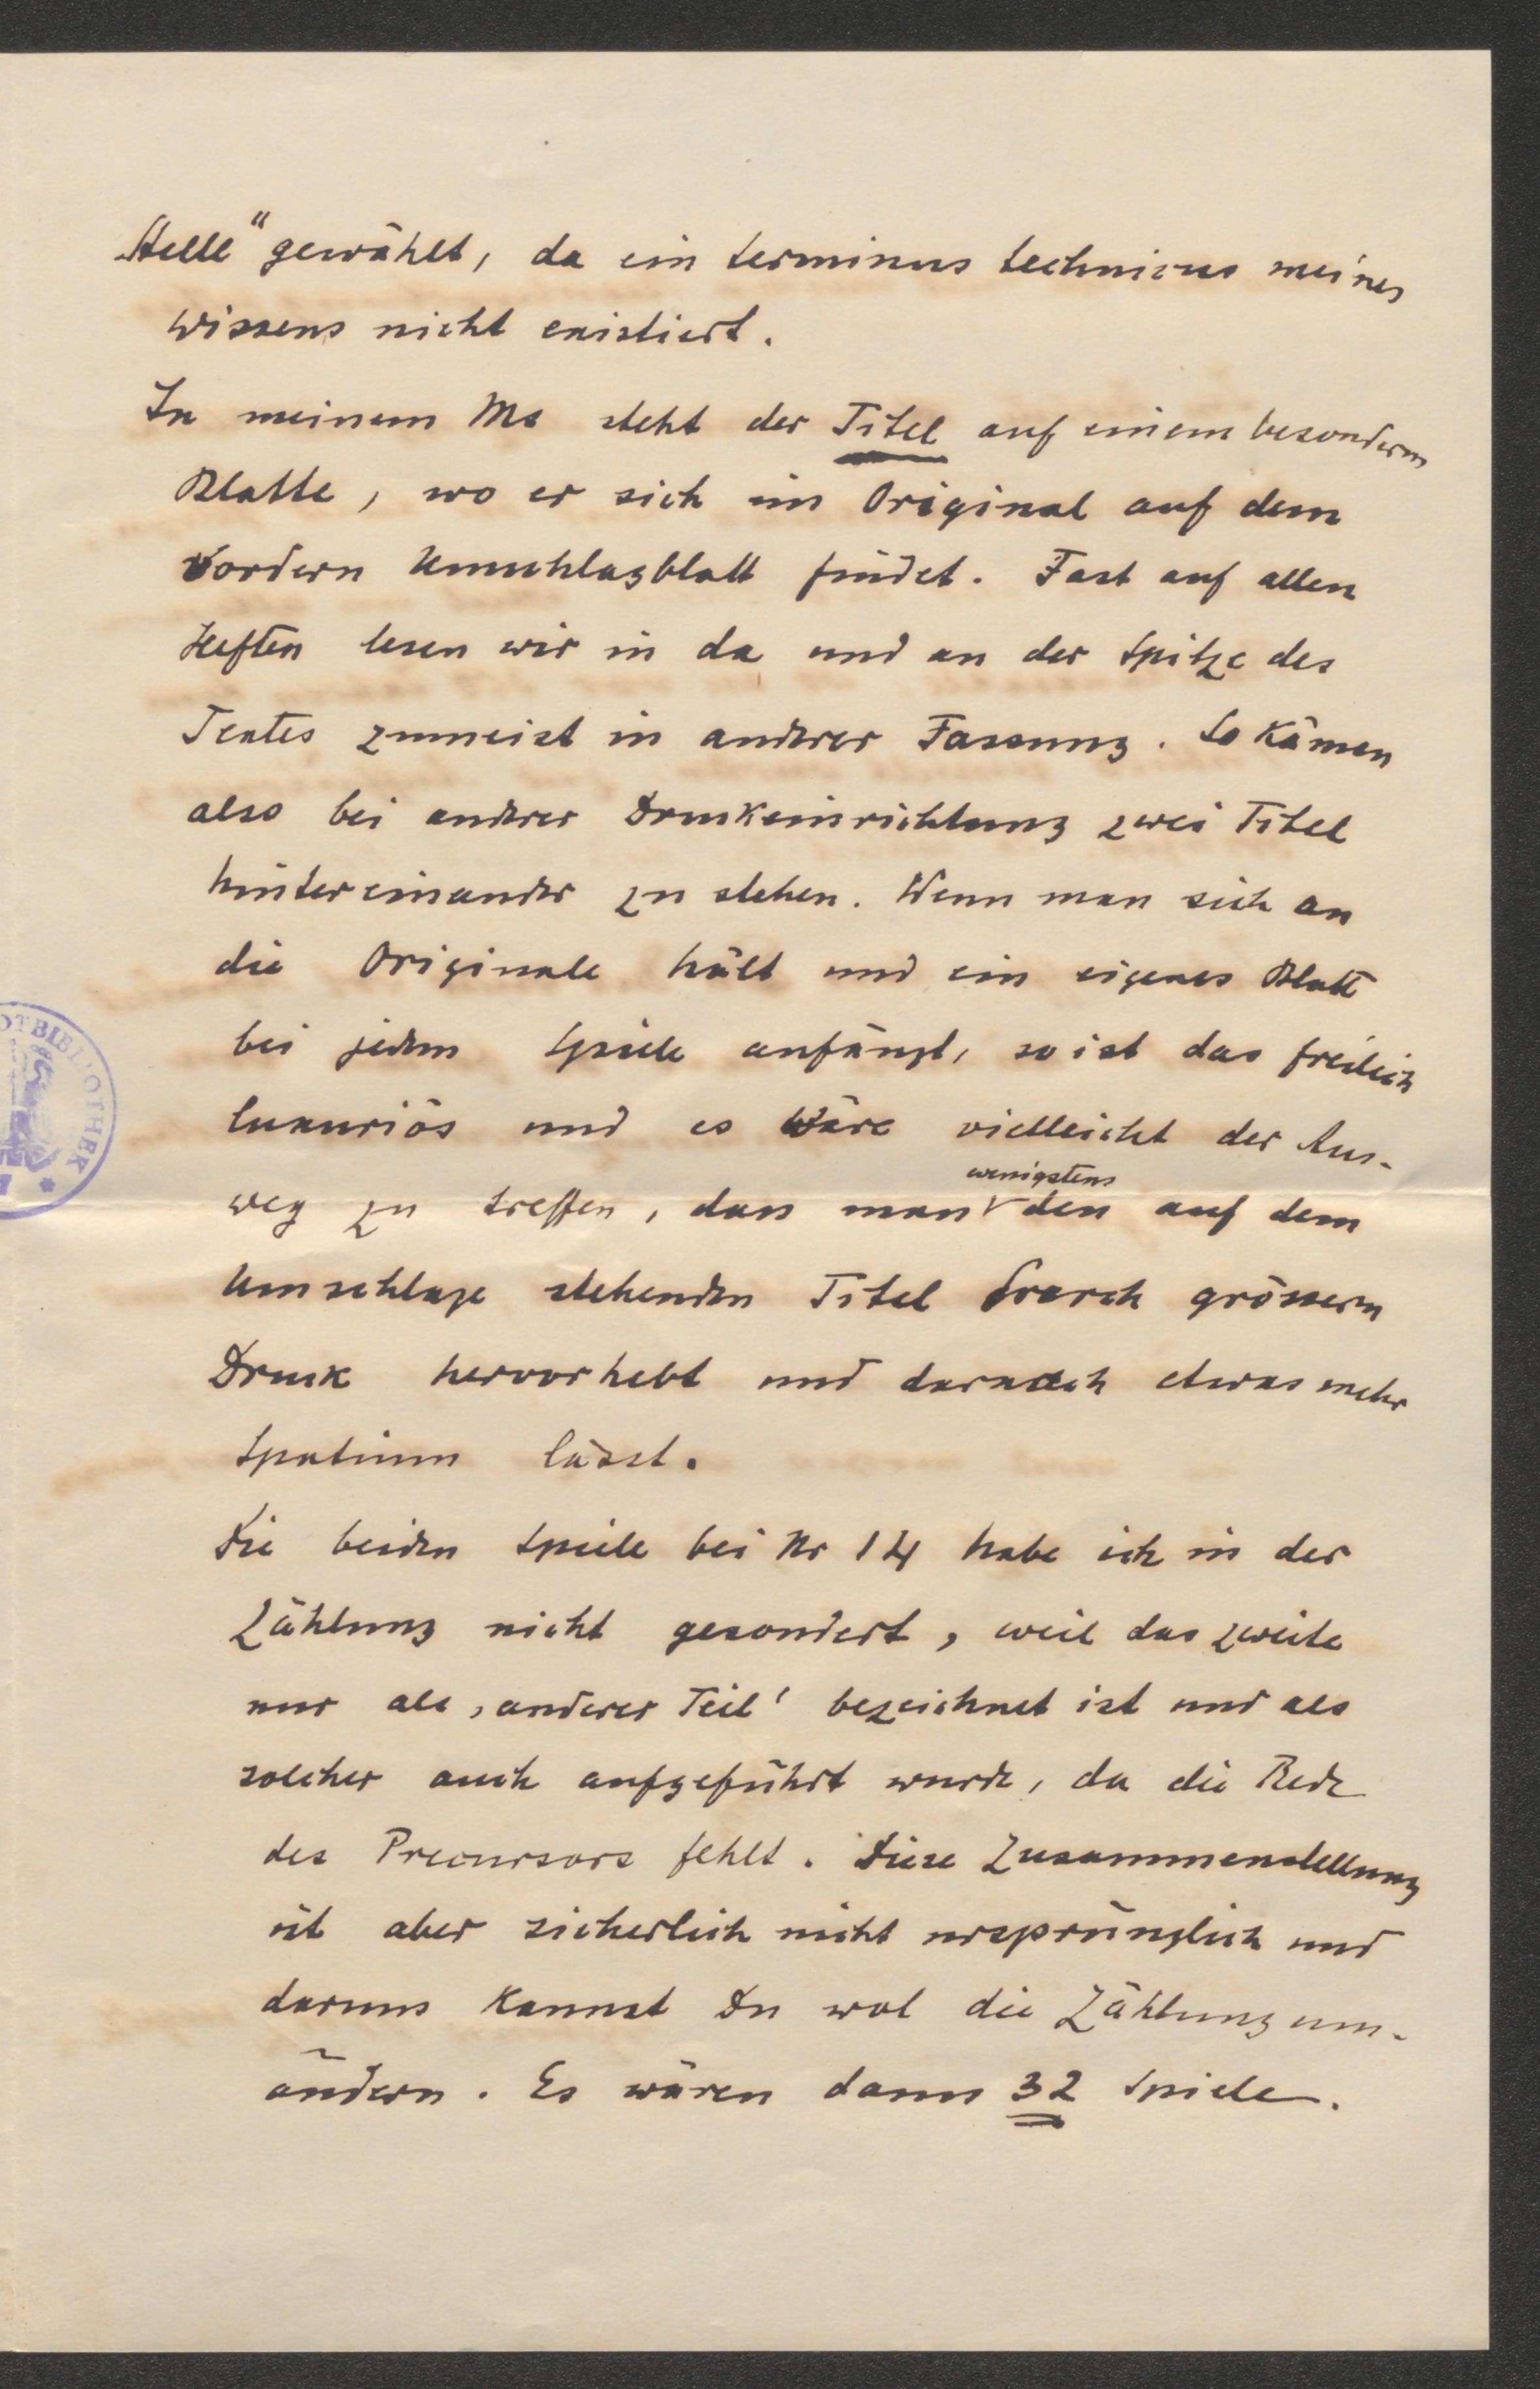 „Stelle“ gewählt, da ein terminus technicus meines
Wissens nicht existiert.
In meinem Ms steht der Titel auf einem besonderm
Blatte, wo er sich im Original auf dem
vordern Umschlagblatt findet. Fast auf allen
Heften lesen wir in da und an der Spitze des
Textes zumeist in anderer Fassung. So kämen
also bei anderer Druckeinrichtung zwei Titel
hintereinander zu stehen. Wenn man sich an
die Originale hält und ein eigenes Blatt
bei jedem Spiele anfängt, so ist das freilich
luxuriös und es wäre vielleicht der Aus-
wenigstens
weg zu treffen, dass man den auf dem
Umschlage stehenden Titel durch grössern
Druck hervorhebt und darnach etwas mehr
Spatium lässt.
Die beiden Spiele bei Nr 14 habe ich in der
Zählung nicht gesondert, weil das zweite
nur als ‚anderer Teil‘ bezeichnet ist und als
solcher auch aufgeführt wurde, da die Rede
des Precursors fehlt. Diese Zusammenstellung
ist aber sicherlich nicht ursprünglich und
darum kannst Du wol die Zählung um-
ändern. Es wären dann 32 Spiele.
OTBIBLIOTHEK